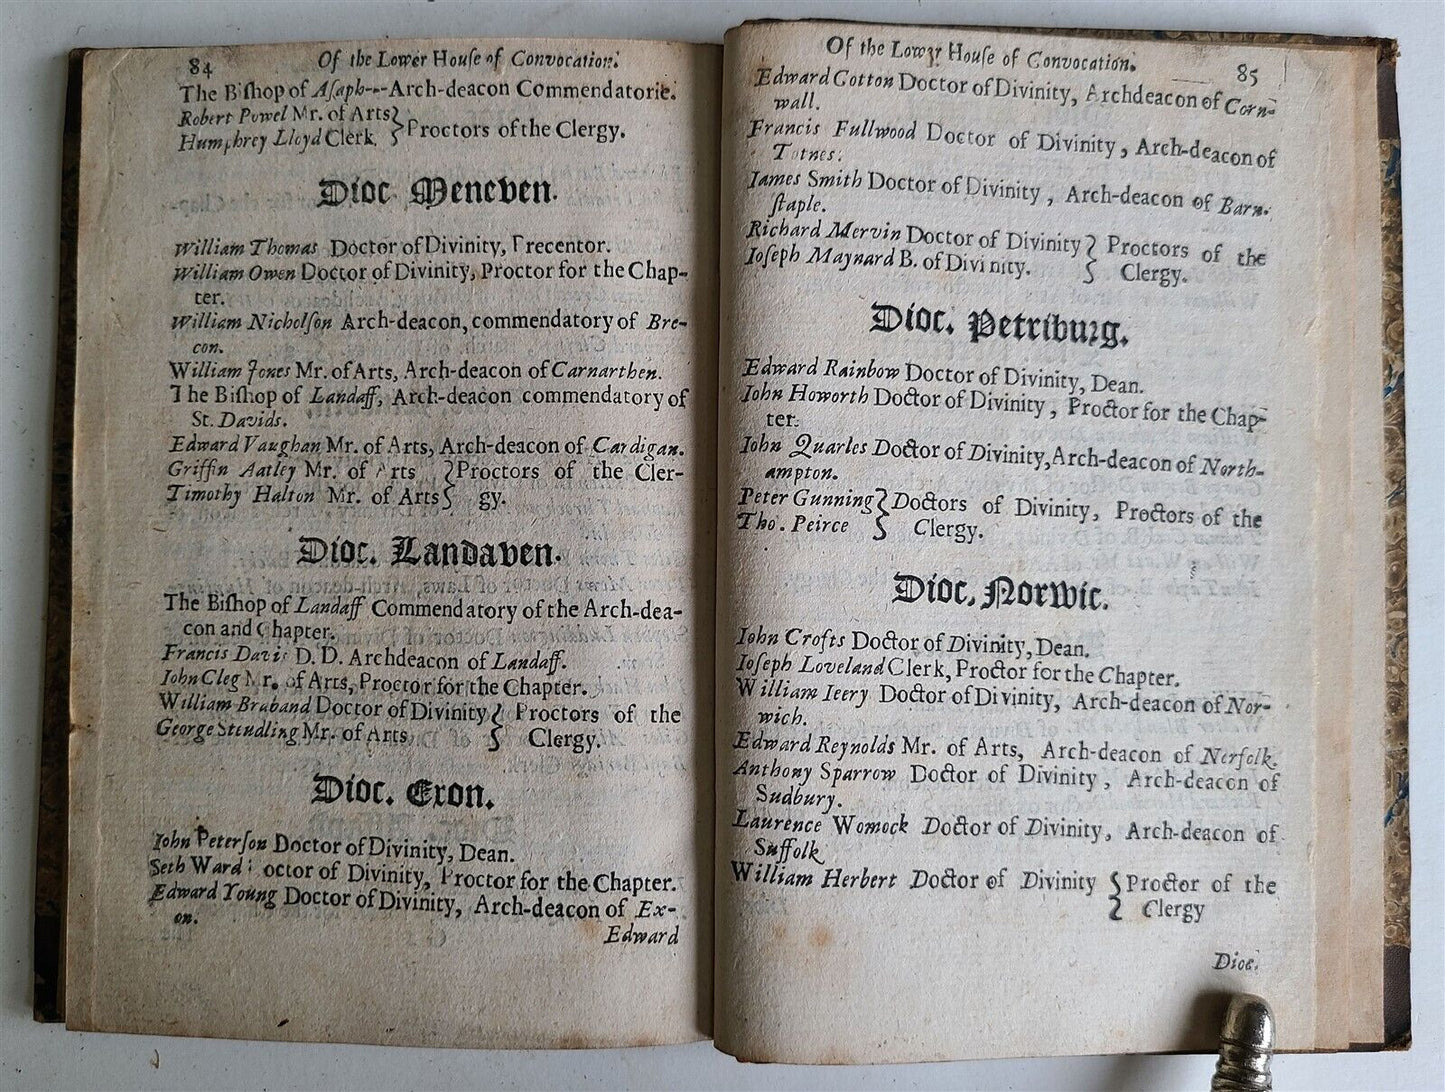 84
Of the Lower House of Convocation.
The Biſhop of Aſaph---Arch-deacon Commendatorie.
Robert Powel Mr. of Arts } Proctors of the Clergy.
Humphrey Lloyd Clerk.
Dioc Meneven.
William Thomas Doctor of Divinity, Precentor.
William Owen Doctor of Divinity, Proctor for the Chap-
ter.
William Nicholſon Arch-deacon, commendatory of Bre-
con.
William Jones Mr. of Arts, Arch-deacon of Carnarthen.
The Biſhop of Landaff, Arch-deacon commendatory of
St. Davids.
Edward Vaughan Mr. of Arts, Arch-deacon of Cardigan.
Griffin Aatley Mr. of Arts } Proctors of the Cler-
Timothy Halton Mr. of Arts } gy.
Dioc. Landaven.
The Biſhop of Landaff Commendatory of the Arch-dea-
con and Chapter.
Francis Davis D. D. Archdeacon of Landaff.
John Cleg Mr. of Arts, Proctor for the Chapter.
William Braband Doctor of Divinity } Proctors of the
George Stradling Mr. of Arts } Clergy.
Dioc. Exon.
John Peterſon Doctor of Divinity, Dean.
Seth Ward octor of Divinity, Proctor for the Chapter.
Edward Young Doctor of Divinity, Arch-deacon of Ex-
on.
Edward
Of the Lower House of Convocation.
85
Edward Cotton Doctor of Divinity, Archdeacon of Corn-
wall.
Francis Fullwood Doctor of Divinity, Arch-deacon of
Totnes.
James Smith Doctor of Divinity, Arch-deacon of Barn.
ſtaple.
Richard Mervin Doctor of Divinity } Proctors of the
Joſeph Maynard B. of Divinity. } Clergy.
Dioc. Petriburg.
Edward Rainbow Doctor of Divinity, Dean.
John Howorth Doctor of Divinity, Proctor for the Chap-
ter.
John Quarles Doctor of Divinity, Arch-deacon of North-
ampton.
Peter Gunning } Doctors of Divinity, Proctors of the
Tho. Peirce } Clergy.
Dioc. Norwic.
John Crofts Doctor of Divinity, Dean.
Joſeph Loveland Clerk, Proctor for the Chapter.
William Ieery Doctor of Divinity, Arch-deacon of Nor-
wich.
Edward Reynolds Mr. of Arts, Arch-deacon of Norfolk.
Anthony Sparrow Doctor of Divinity, Arch-deacon of
Sudbury.
Laurence Womock Doctor of Divinity, Arch-deacon of
Suffolk
William Herbert Doctor of Divinity { Proctor of the
Clergy
Dioc.